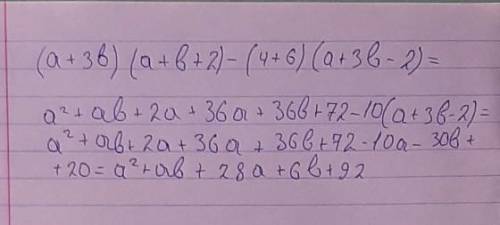 (a+3b)(a+b+2)-(4+6)(a+3b-2)=
a²+ab+2a+36a+36b+72-10(a+3b-2)=
a²+ab+2a+36a+36b+72-10a-30b+
+20=a²+ab+28a+6b+92